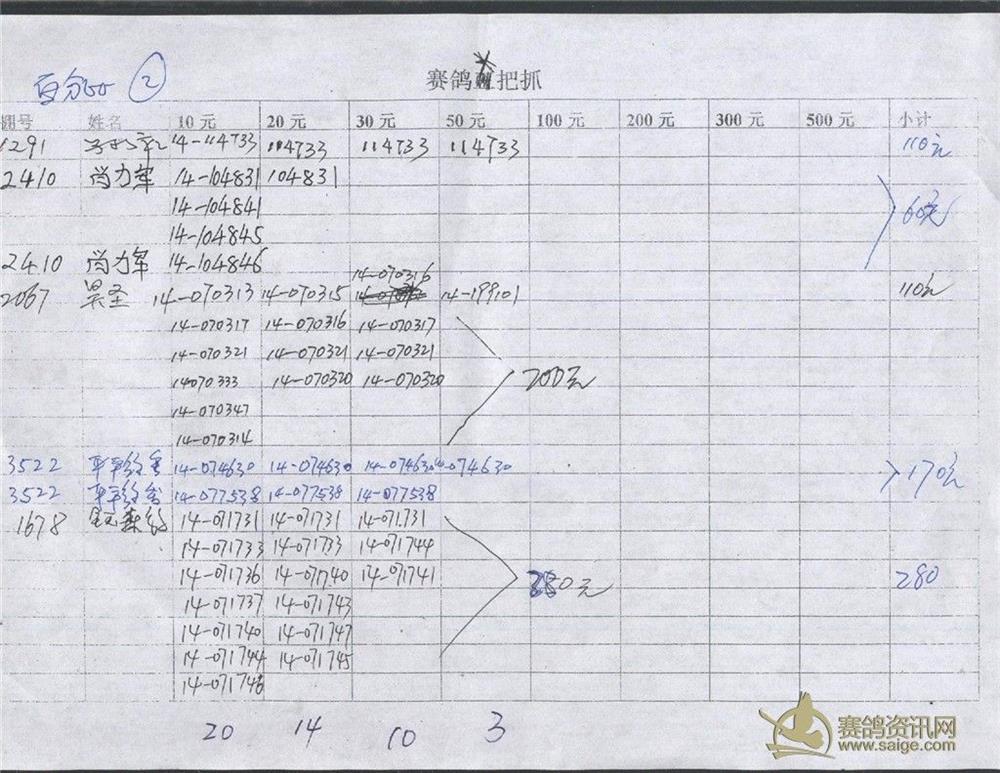 百分 ②
赛鸽 把抓
棚号 姓名 10元 20元 30元 50元 100元 200元 300元 500元 小计
1291 14-114733 114733 114733 114733 110元
2410 尚力军 14-104831 104831
14-104841 60元
14-104845
2410 尚力军 14-104846
14-070316
2067 吴圣 14-070313 14-070315 14-199101 110元
14-070317 14-070316 14-070317
14-070321 14-070321 14-070321
14070333 14-070320 14-070320 200元
14-070347
14-070314
3522 14-074630 14-074630 14-074630 14-074630 170元
3522 14-077538 14-077538 14-077538
1678 14-071731 14-071731 14-071731
14-071733 14-071733 14-071744
14-071736 14-071740 14-071741 280元 280
14-071737 14-071743
14-071740 14-071747
14-071744 14-071745
14-071746
20 14 10 3
赛鸽资讯网
www.saige.com